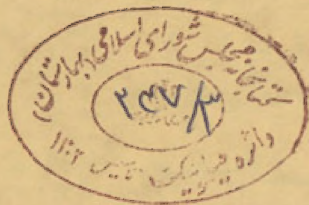 کتابخانه مجلس شورای اسلامی (بهارستان)
۲۴۷/۳
تاسیس ۱۳۰۲